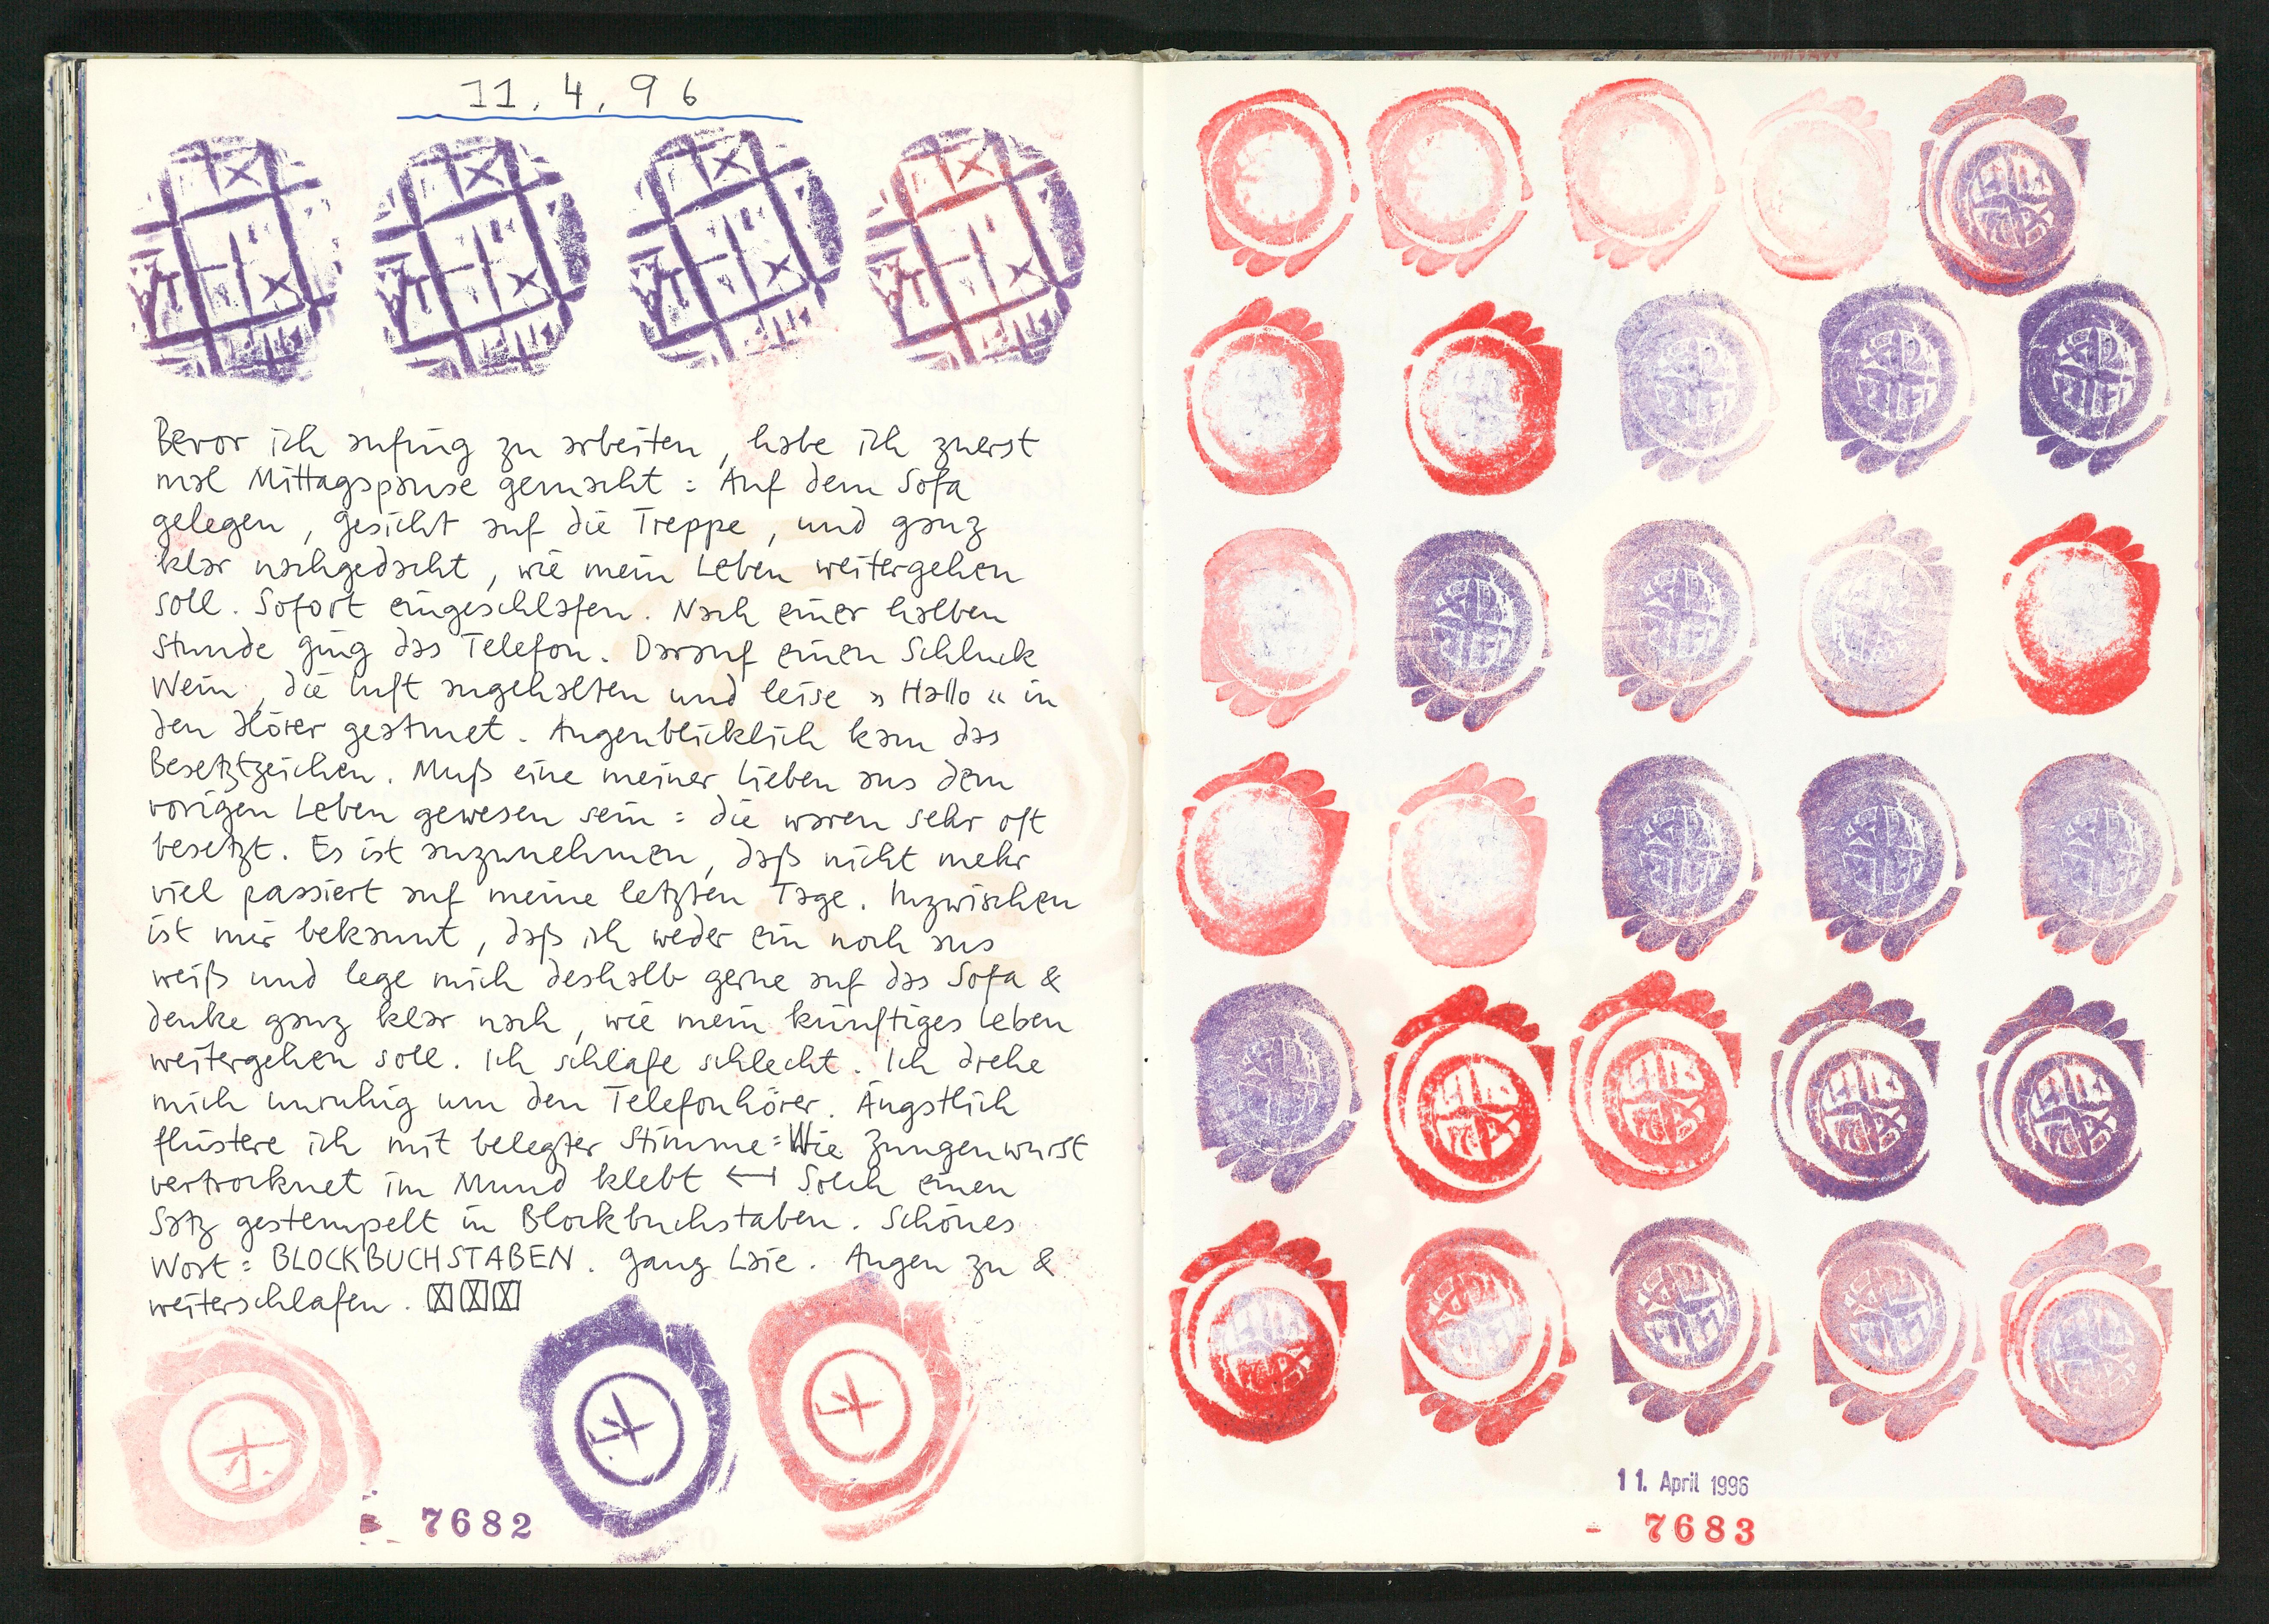 11.4.96
Bevor ich anfing zu arbeiten, habe ich zuerst
mal Mittagspause gemacht: Auf dem Sofa
gelegen, Gesicht auf die Treppe, und ganz
klar nachgedacht, wie mein Leben weitergehen
soll. Sofort eingeschlafen. Nach einer halben
Stunde ging das Telefon. Darauf einen Schluck
Wein, die Luft angehalten und leise »Hallo« in
den Hörer geatmet. Augenblicklich kam das
Besetztzeichen. Muß eine meiner Lieben aus dem
vorigen Leben gewesen sein: die waren sehr oft
besetzt. Es ist anzunehmen, daß nicht mehr
viel passiert auf meine letzten Tage. Inzwischen
ist mir bekannt, daß ich weder ein noch aus
weiß und lege mich deshalb gerne auf das Sofa &
denke ganz klar nach, wie mein künftiges Leben
weitergehen soll. Ich schlafe schlecht. Ich drehe
mich unruhig um den Telefonhörer. Ängstlich
flüstere ich mit belegter Stimme: Wie Zungenwurst
vertrocknet im Mund klebt ⟷ Solch einen
Satz gestempelt in Blockbuchstaben. Schönes
Wort: BLOCKBUCHSTABEN. Ganz Laie. Augen zu &
weiterschlafen. ☒☒☒
7682
11. April 1996
- 7683